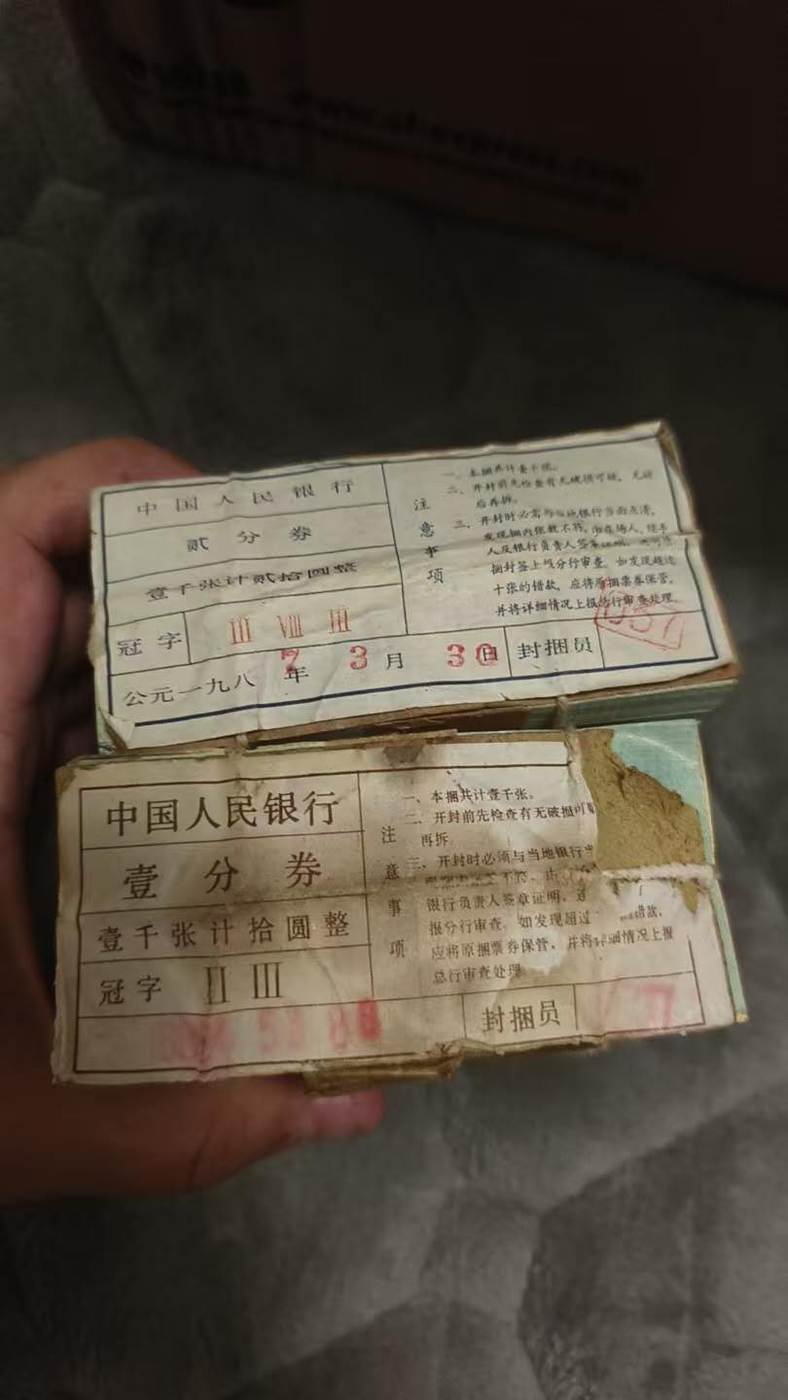 中国人民银行
贰分券
壹千张计贰拾圆整
冠字 III VIII III
公元一九八7年3月30日
封捆员
注意事项
一、本捆共计壹千张。
二、开封时先检查有无破损可疑,
后再拆。
三、开封时必需与当地银行当面点清,
发现捆内张数不符,
人及银行负责人签章证明,
捆封签上级分行审查。如发现超过
十张的错款,应将原捆票券保管,
并将详细情况上报总行审查处理。
中国人民银行
壹分券
壹千张计拾圆整
冠字 II III
封捆员
注意事项
一、本捆共计壹千张。
二、开封前先检查有无破损可
再拆
三、开封时必须与当地银行当
银行负责人签章证明,
报分行审查。如发现超过 错款,
应将原捆票券保管,并将详细情况上报
总行审查处理